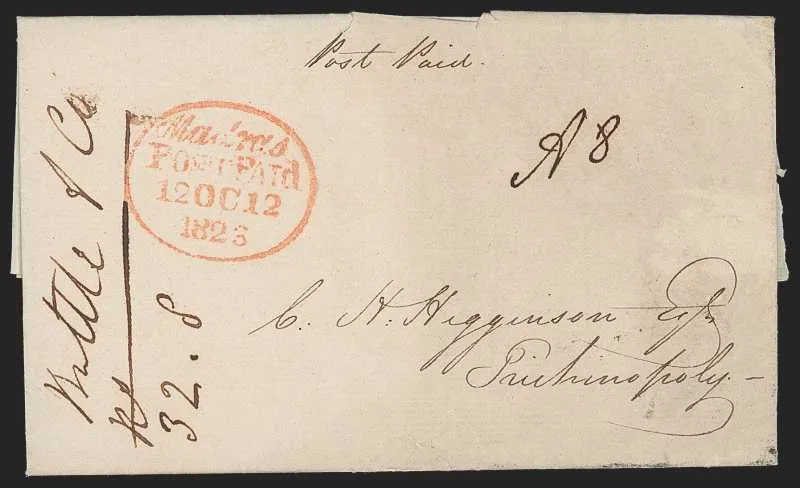 Post Paid.
Madras
POST PAId
12 OC 12
1823
A 8
C. H. Higginson Esqr
Trichinopoly -
& Co
Rs
32 . 8